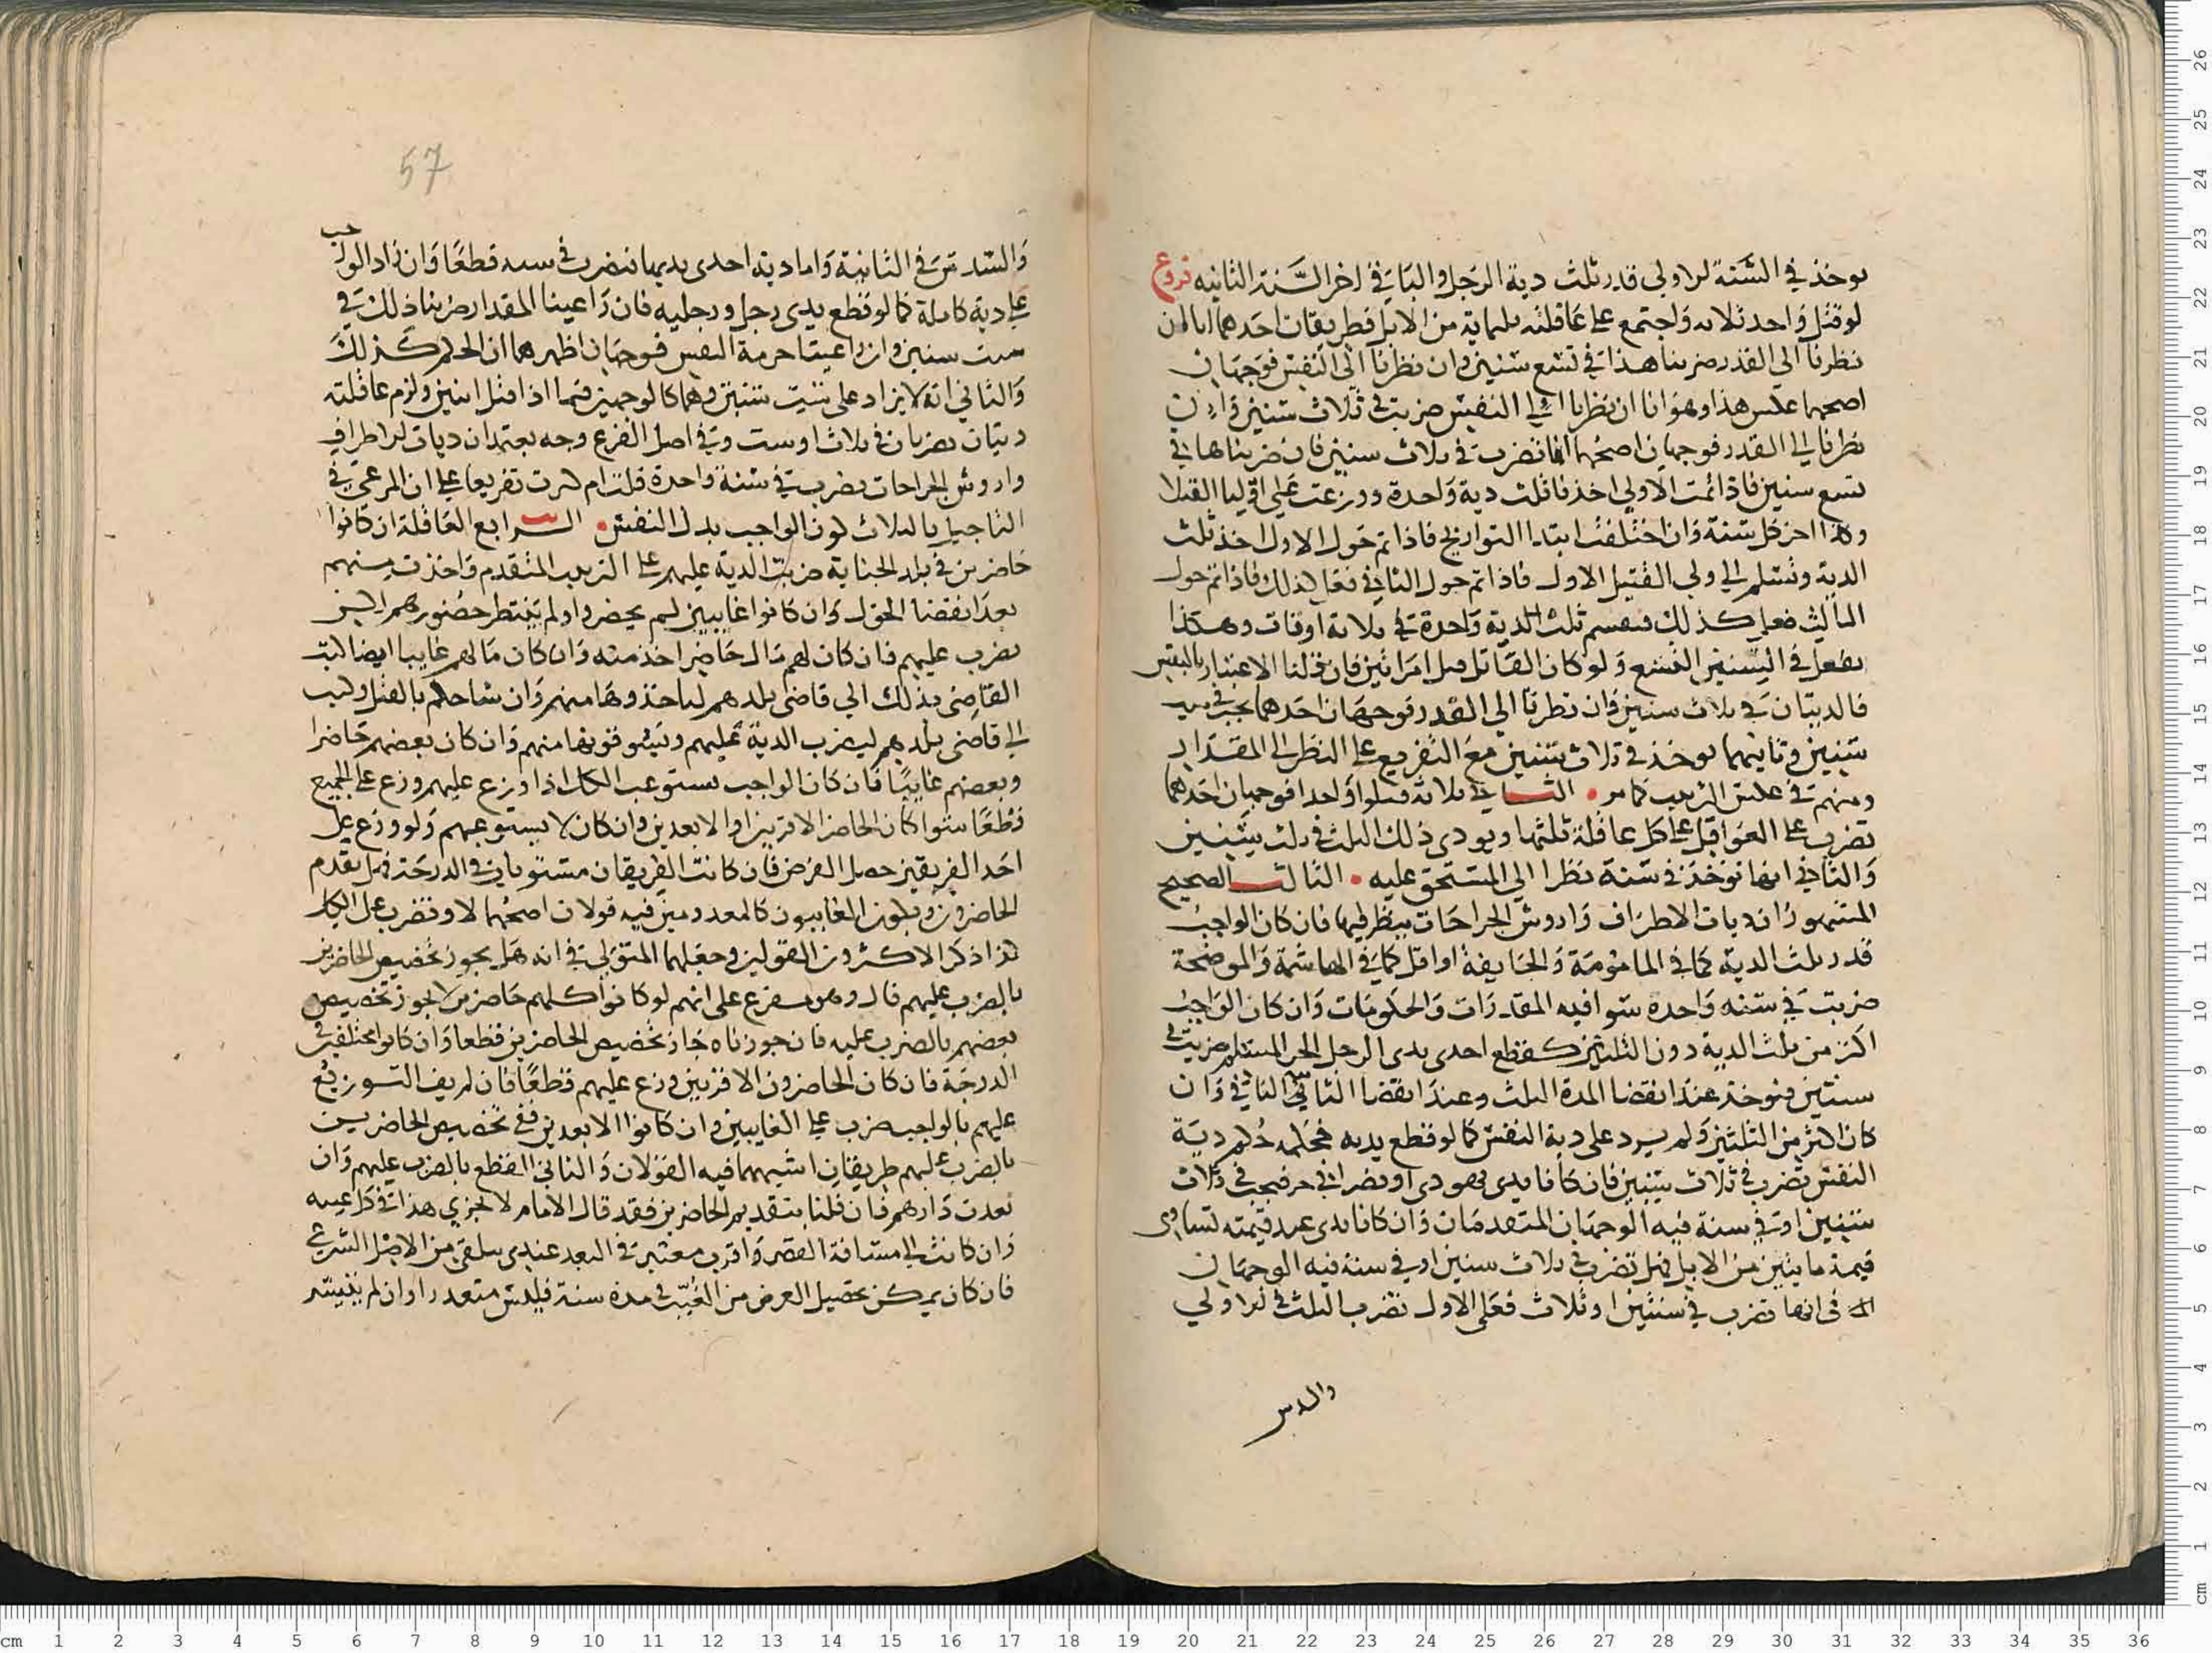 يوخذ في السنة الاولي قدر ثلث دية الرجل والباقي في اخر السنة الثانيه فروع
لو قتل واحد ثلاثه واجتمع على عاقلته ثلثماية من الابل فطريقان احدهما انا ان
نظرنا الى القدر ضربنا هذا في تسع سنين وان نظرنا الى النفس فوجهان
اصحهما عكس هذا وهو انا ان نظرنا الي النفس ضربت في ثلاث سنين وان
نظرنا الي القدر فوجهان اصحهما انها تضرب في ثلاث سنين فان ضربناها في
تسع سنين فاذا تمت الاولي اخذنا ثلث دية واحدة ووزعت على اوليا القتلا
وكذا اخر كل سنة وان اختلفت ابتدا التواريخ فاذا تم حول الاول اخذ ثلث
الدية وتسلم الي ولي القتيل الاول فاذا تم حول الثاني فعل كذلك فاذا تم حول
الثالث فعل كذلك فيقسم ثلث الدية واحدة في ثلاثة اوقات وهكذا
يفعل في السنين التسع ولو كان القاتل قتل امراتين فان قلنا الاعتبار بالنفس
فالديتان في ثلاث سنين وان نظرنا الي القدر فوجهان احدهما يجب في
سنتين وثانيهما يوخذ في ثلاث سنين مع التفريع على النظر الي المقدار
ومنهم من عكس الترتيب كما مر • الثاني ثلاثة قتلوا واحدا فوجهان احدهما
تضرب على العواقل على كل عاقلة ثلثها ويودى ذلك الثلث في ثلث سنين
والثاني انها توخذ في سنة نظرا الي المستحق عليه • الثالث الصحيح
المشهور ان ديات الاطراف واروش الجراحات ينظر فيها فان كان الواجب
قدر ثلث الدية كما في المامومة والجايفة او اقل كما في الهاشمة والموضحة
ضربت في سنه واحده سوا فيه المقدرات والحكومات وان كان الواجب
اكثر من ثلث الدية دون الثلثين كقطع احدى يدى الرجل الحر المسلم ضربت في
سنتين فيوخذ عند انقضا المدة الثلث وعند انقضا الثاني الباقي وان
كان اكثر من الثلثين ولم يزد على دية النفس كما لو قطع يديه فحكمه حكم دية
النفس تضرب في ثلاث سنين فان كانا يدى يهودى او نصراني حر فيجب في ثلاث
سنين او في سنة فيه الوجهان المتقدمان وان كانا يدى عبد قيمته تساوى
قيمة مايتين من الابل فهل تضرب في ثلاث سنين او في سنة فيه الوجهان
في انها تضرب في سنتين او ثلاث فعلى الاول تضرب الثلث في الاولي
والسدس
57
والسدس في الثانية واما دية احدى يديها فتضرب في سنه قطعا وان زاد الواجب
على دية كاملة كما لو قطع يدى رجل ورجليه فان راعينا المقدار ضربنا ذلك في
ست سنين وان راعينا حرمة النفس فوجهان اظهرهما ان الحكم كذلك
والثاني انه لا يزاد على سنين وهما كالوجهين فيما اذا قتل اثنين ولزم عاقلته
ديتان يضربان في ثلاث او ست وفي اصل الفرع وجه بعيد ان ديات الاطراف
واروش الجراحات تضرب في سنة واحدة قلت ام كثرت تفريعا على ان المرعي في
التاجيل بالثلاث كون الواجب بدل النفس • الرابع العاقلة ان كانوا
حاضرين في بلد الجناية ضربت الدية عليهم على الترتيب المتقدم واخذت منهم
بعد انقضا الحول وان كانوا غايبين لم يحضروا ولم ينتظر حضورهم
يضرب عليهم فان كان لهم مال حاضر اخذ منه وان كان مالهم غايبا ايضا كتب
القاضي بذلك الي قاضي بلدهم لياخذوها منهم وان شا حكم بالقتل وكتب
الي قاضي بلدهم ليضرب الدية عليهم ويستوفونها منهم وان كان بعضهم حاضرا
وبعضهم غايبا فان كان الواجب يستوعب الكل اذا وزع عليهم وزع على الجميع
قطعا سوا كان الحاضر الاقربين او الابعدين وان كان لا يستوعبهم ولو وزع على
احد الفريقين حصل الغرض فان كانت الفريقان مستويان في الدرجة فهل يقدم
الحاضرون ويكون الغايبون كالمعدومين فيه قولان اصحهما لا وتضرب على الكل
كذا ذكر الاكثرون القولين وجعلهما المتولي في انه هل يجوز تخصيص الحاضرين
بالضرب عليهم قال وهو مفرع على انهم لو كانوا كلهم حاضرين لا يجوز تخصيص
بعضهم بالضرب عليه فان جوزناه جاز تخصيص الحاضرين قطعا وان كانوا مختلفين في
الدرجة فان كان الحاضرون الاقربين وزع عليهم قطعا فان لم يف التوزيع
عليهم بالواجب ضرب على الغايبين وان كانوا الابعدين ففي تخصيص الحاضرين
بالضرب عليهم طريقان اشبههما فيه القولان والثاني القطع بالضرب عليهم وان
بعدت دارهم فان قلنا بتقديم الحاضرين فقد قال الامام لا يجزي هذا في كل غيبه
وان كانت الي مسافة القصر واقرب معتبر في البعد عندي يتلقى من الاصل الشرعي
فان كان يمكن تحصيل الغرض من الغيب في مدة سنة فليس متعدرا وان لم يتيسر